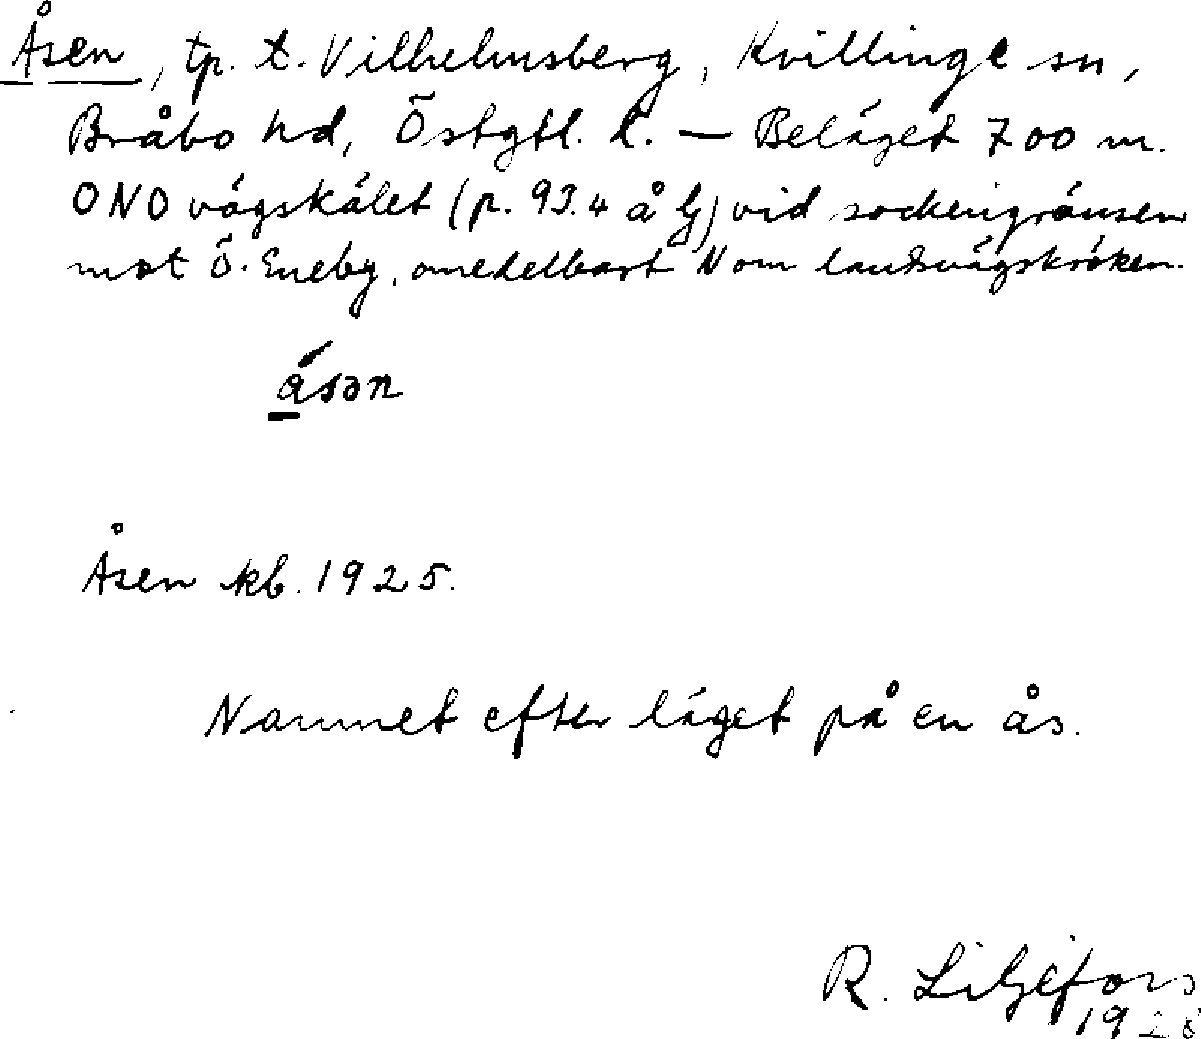 Åsen, tp. t. Vilhelmsberg, Kvillinge sn,
Bråbo hd, Östgtl. l. — Beläget 700 m.
ONO vägskälet (p. 93.4 å G) vid sockengränsen
mot Ö. Eneby, omedelbart N om landsvägskröken.
ásən
Åsen kb. 1925.
Namnet efter läget på en ås.
R. Liljefors
1928